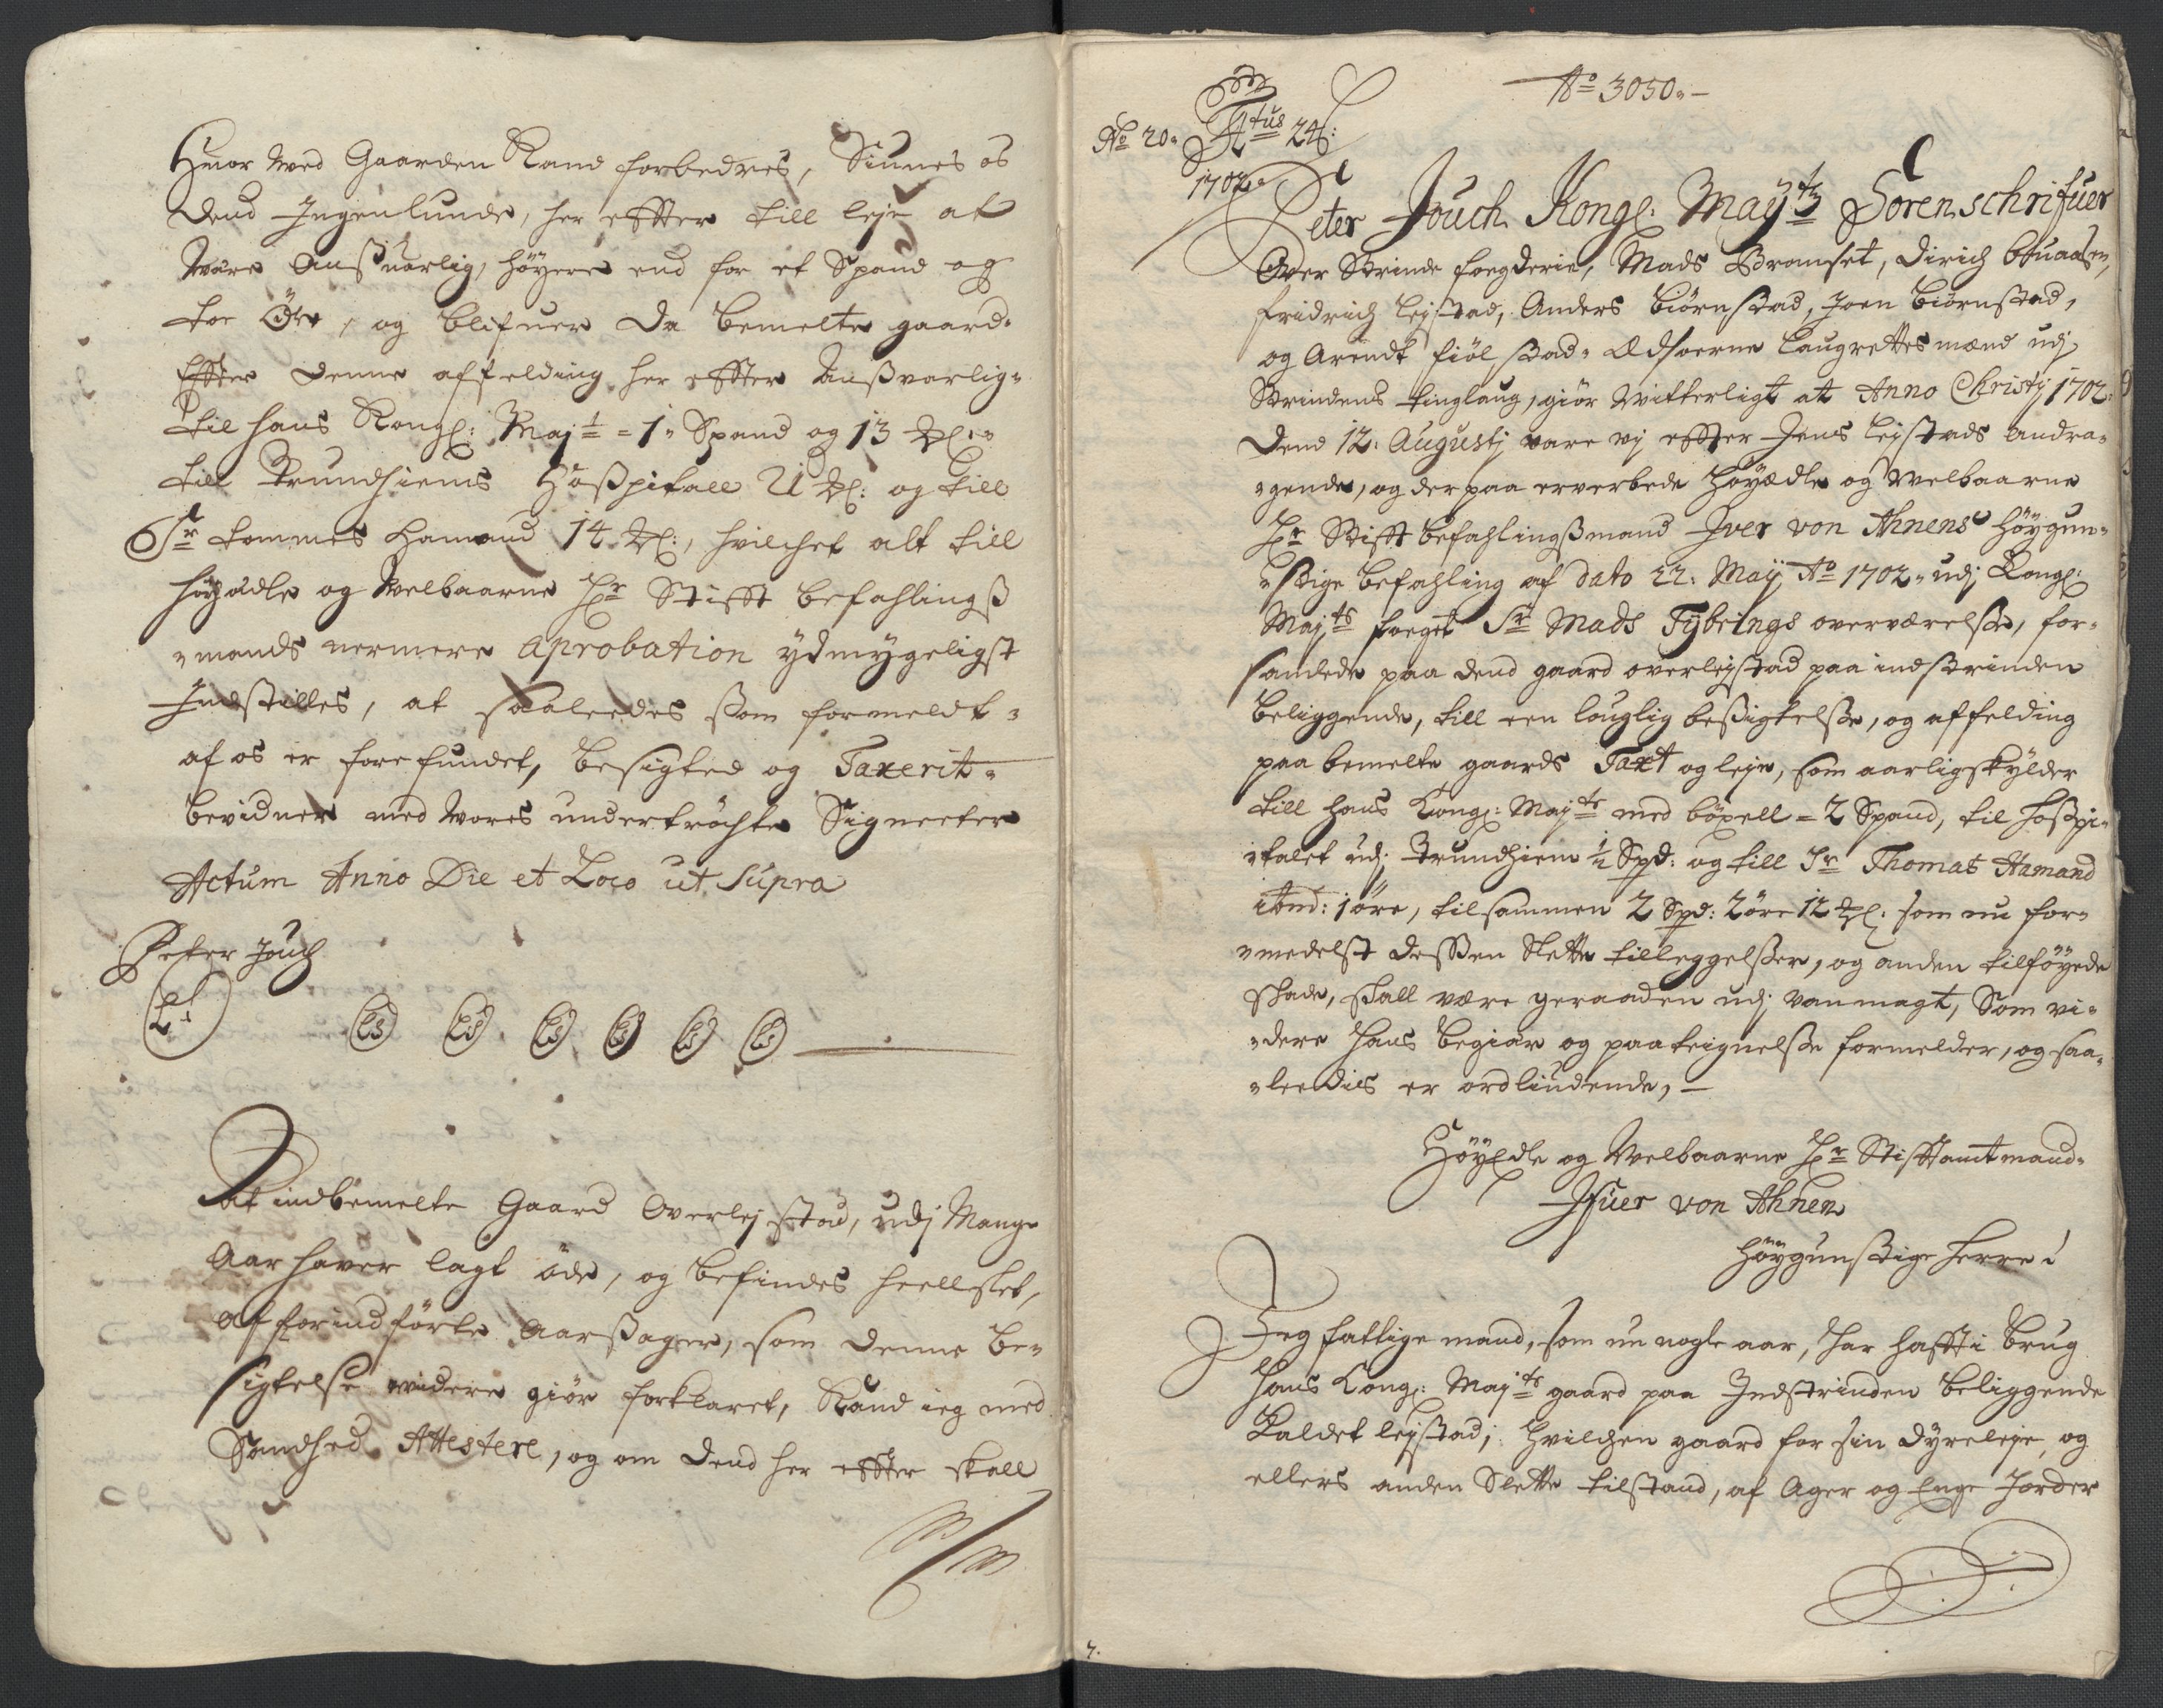 Huor Wed Gaarden Kand forbedres, Siunes os
Dend Ingenlunde, her effter till leje at
Være Ansvarlig, höyere end for et Spand og
toe Öre, og blifuer da bemelte gaard
Effter denne affelding her effter Ansvarlig
til hans Kongl: Majt = 1 Spand og 13 ...
till Trundhiems Hosspitall 21 ... og till
Sr tommes hamand 14 ..., hvilchet alt till
höyædle og Welbaarne Hr Stifft befahlings
mands nermere aprobation ydmygeligst
Indstilles, at saaleedes som formeldt
af os er forefundet, besigted og Taxerit
bevidner med Wores undertröchte Signeeter
Actum Anno Die et Loco ut supra
Peter Jouch
LS LS LS LS LS LS LS
At indbemelte Gaard Overlejstad, udj Mange
Aar haver lagt öde, og befindes heellslet,
af forindförte Aarsager, som denne be-
sigtelse videre giör forklaret, Kand ieg med
Sandhed Attestere, og om dend her effter skall
No 3050.
No 20. Atus 24:
1702
Peter Jouch Kongl: Mayts Sorenschrifuer
Over Strinde foegderie, Mads Bromset, Dirich
fridrich lejstad, Anders biörnstad, Joen biörnstad,
og Arendt fiölstad Edsoerne Laugrettesmænd udj
Strindens tinglaug, giör Witterligt at Anno Christj 1702
Dend 12: Augustj vare vj effter Jens lejstads andra-
gende, og derpaa erverbede höyædle og Welbaarne
Hr Stifft befahlingsmand Iver von Ahnens höygun-
stige befahling af dato 22: Maÿ Ao 1702 udj Kongl:
Majts foeget Sr Mads Tÿbrings overværelse, for-
samlede paa dend gaard overlejstad paa indstrinden
beliggende, till een louglig besigtelse, og affelding
paa bemelte gaards Taxt og leje, som aarlig skylder
till hans Kongl: Majts med böxell = 2 Spand, til hospi-
talet udj Trundhiem ½ Spd: og till Sr Thomas Hamand
ibid: 1 öre, tilsammen 2 Spd: 2 öre 12 ... som nu for-
medelst dessen Slette tilleggelser, og anden tilföyede
skade, skall være geraaden udj vanmagt, Som vi-
dere hans begiær og paateignelse formelder, og saa-
leedis er ordliudende,
HöyEdle og Welbaarne Hr Stifftamtmand
Ifuer von Ahnen
höygunstige herre
Jeg fattige mand, som nu nogle aar, har hafft i brug
Hans Kongl: Majts gaard paa Indstrinden beliggende
Kaldet lejstad; hvilchen gaard for sin dyreleje, og
ellers anden Slette tilstand, af Ager og Enge Jorder
7.